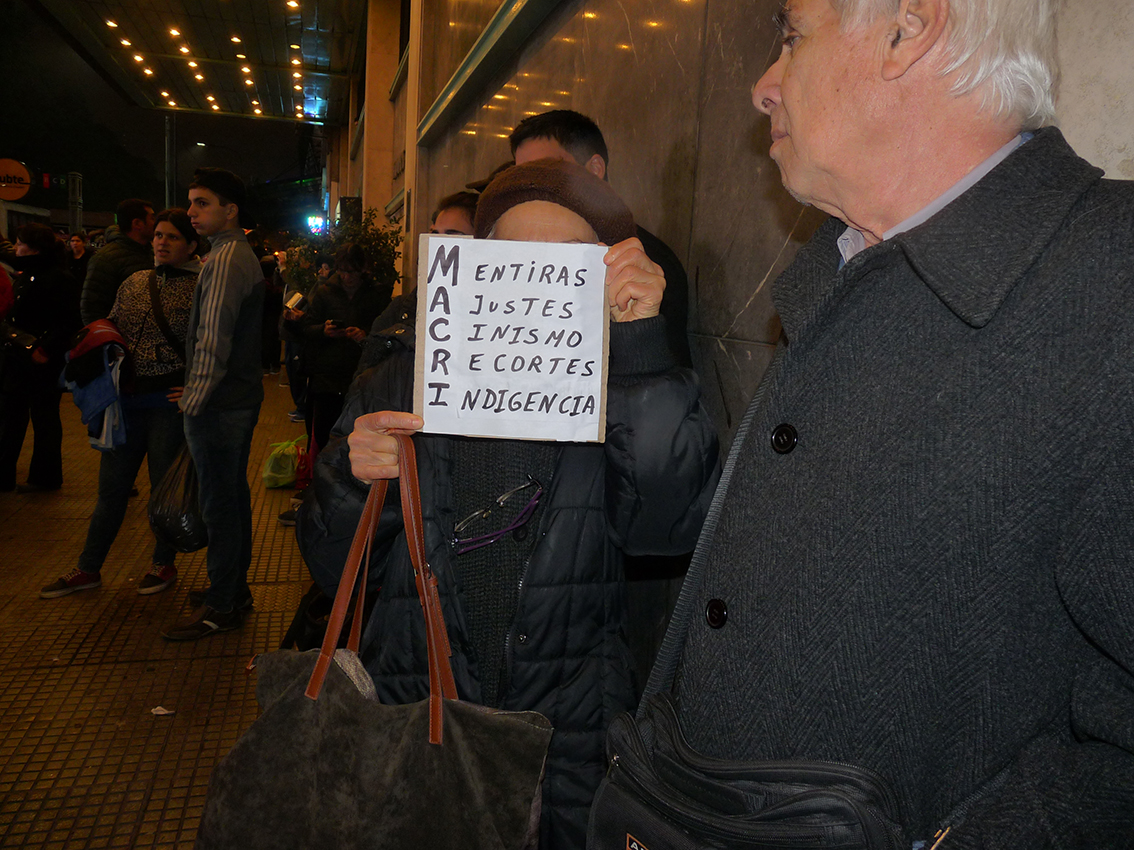 ubte
MENTIRAS
AJUSTES
CINISMO
RECORTES
INDIGENCIA